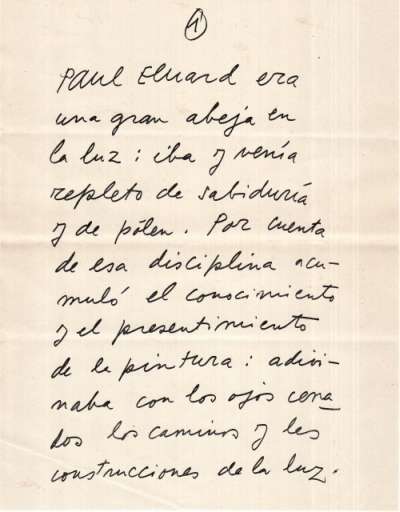 1
Paul Eluard era
una gran abeja en
la luz : iba y venía
repleto de sabiduría
y de pólen. Por cuenta
de esa disciplina acu-
muló el conocimiento
y el presentimiento
de la pintura : adivi-
naba con los ojos cerra-
dos los caminos y las
construcciones de la luz.